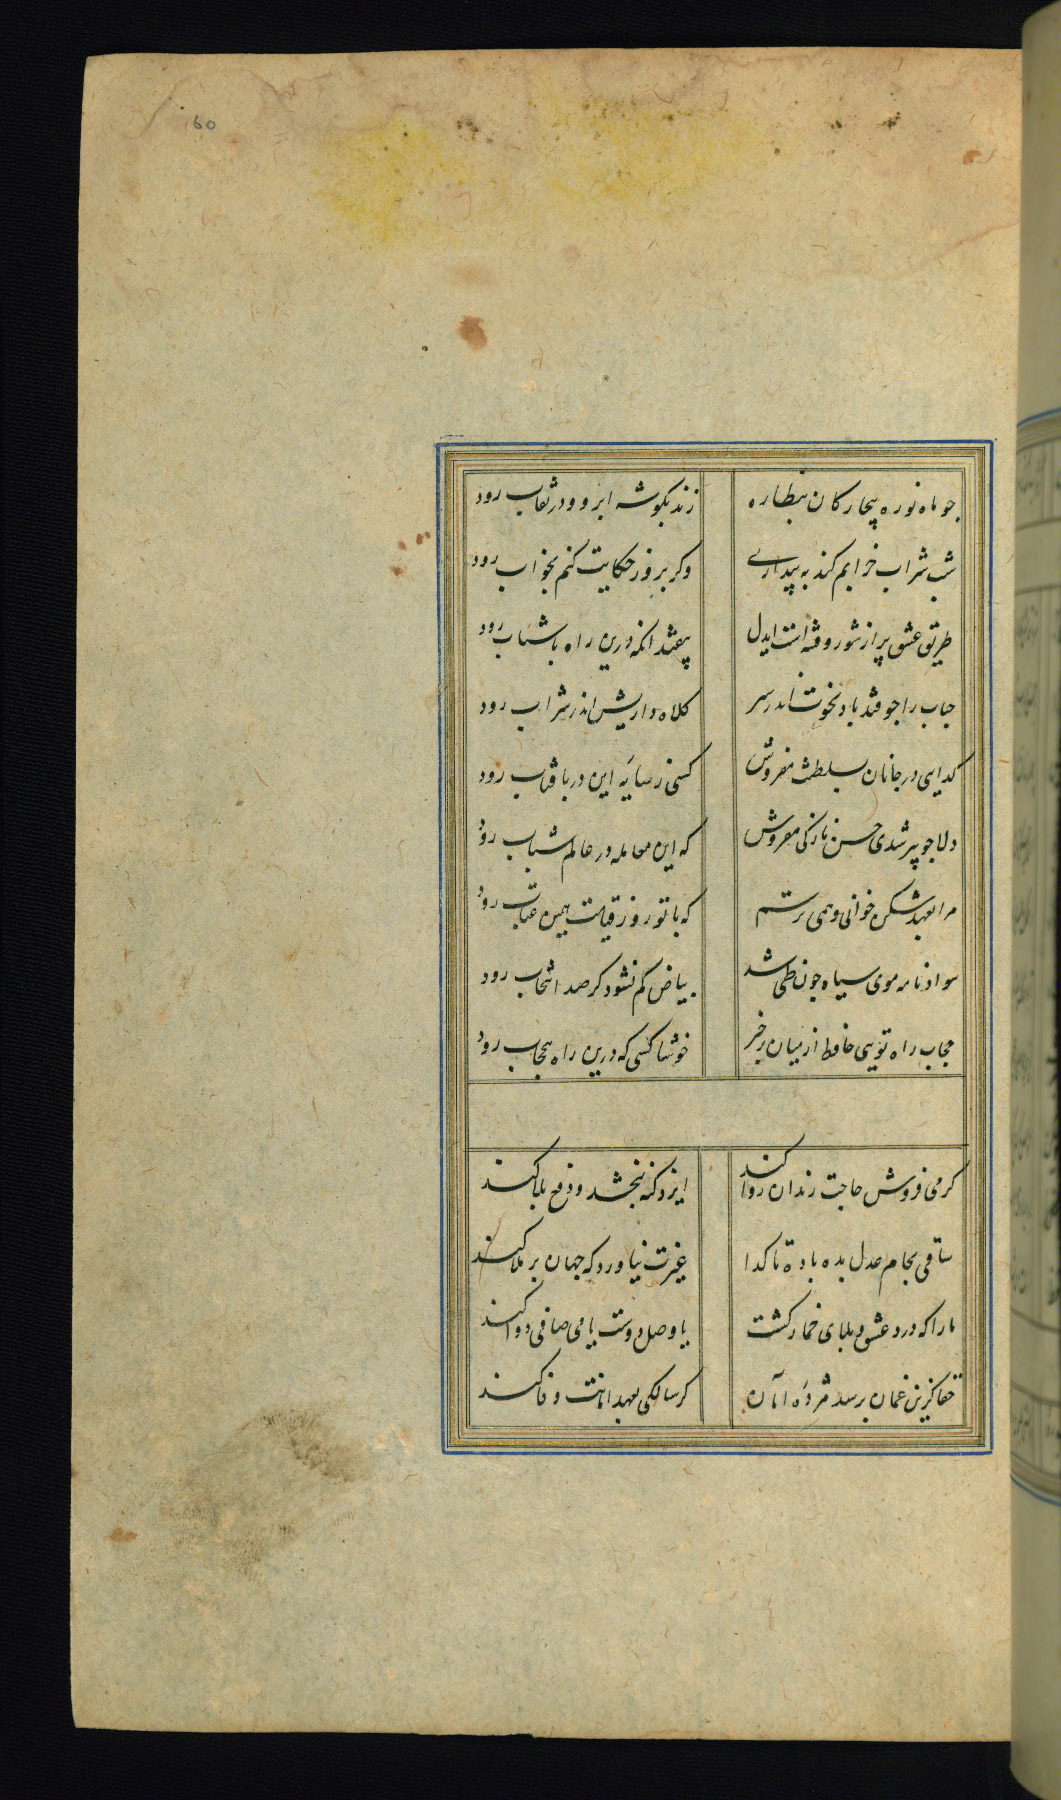 60
جو ماه نو ره بیچارکان بنظاره
زند بکوشه ابرو و در نقاب رود
شب شراب خرابم کند به بیداری
وکر بروز حکایت کنم بخواب رود
طریق عشق پر از شور و فتنه است ایدل
بیفتد انکه درین راه باشتاب رود
حباب را جو فتد باد نخوت اندر سر
کلاه داریش اندر شراب رود
کدایی در جانان بسلطنت مفروش
کسی ز سایه این در بافتاب رود
دلا جو پیر شدی حسن و نازکی مفروش
که این معامله در عالم شباب رود
مرا بعهد شکن خوانی و همی ترسم
که با تو روز قیامت همین عتاب رود
سواد نامه موی سیاه جون طی شد
بیاض کم نشود کر صد انتخاب رود
حجاب راه تویی حافظ از میان برخیز
خوشا کسی که درین راه بیحجاب رود
کر می فروش حاجت رندان روا کند
ایزد کنه ببخشد و دفع بلا کند
ساقی بجام عدل بده باده تا کدا
غیرت نیاورد که جهان بر ملا کند
ما را که درد عشق و بلای خمار کشت
یا وصل دوست یا می صافی دوا کند
حقا کزین غمان برسد مژده امان
کر سالکی بعهد امانت وفا کند